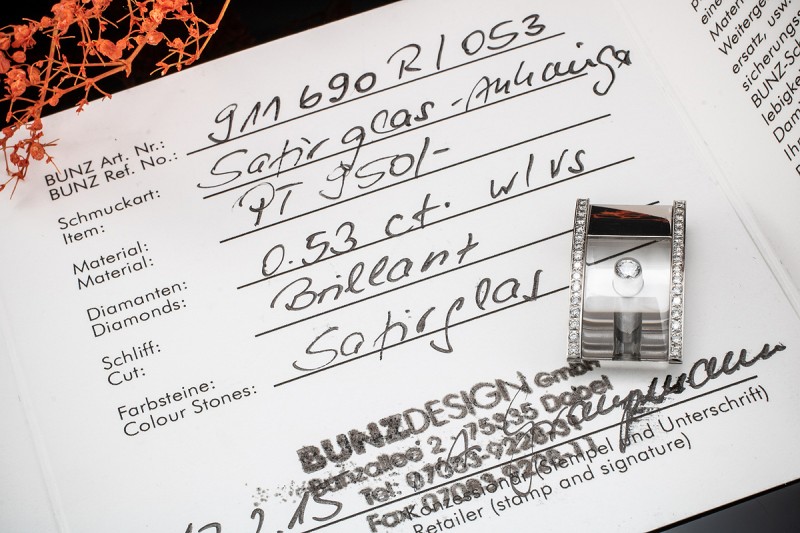 BUNZ Art. Nr.: 911 690 R/053
BUNZ Ref. No.:
Schmuckart: Satirglas-Anhänger
Item:
Material: PT 950/-
Material:
Diamanten: 0.53 ct. w/vs
Diamonds:
Schliff: Brillant
Cut:
Farbsteine: Satirglas
Colour Stones:
BUNZDESIGN GmbH
Bunzallee 2, 75335 Dobel
Tel: 07083-
Fax: 07083-
Konzessionär (Stempel und Unterschrift)
Retailer (stamp and signature)
eine
Materi
Weiterge
ersatz, usw
sicherungs
BUNZ-Sch
lebigkei
Dam
Ihr